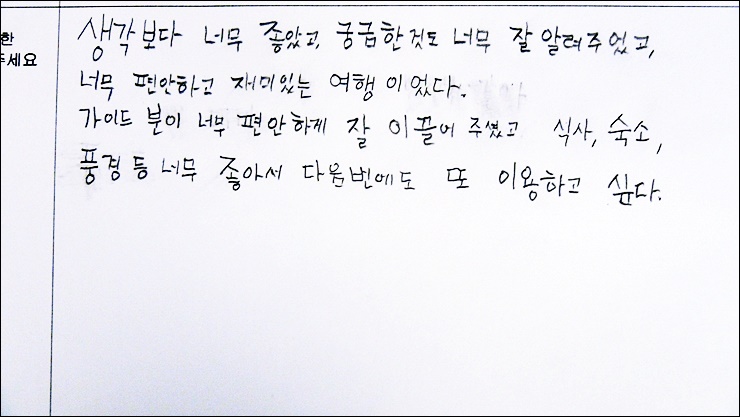 한
주세요
생각보다 너무 좋았고, 궁금한것도 너무 잘 알려주었고,
너무 편안하고 재미있는 여행 이었다.
가이드 분이 너무 편안하게 잘 이끌어 주셨고 식사, 숙소,
풍경 등 너무 좋아서 다음번에도 또 이용하고 싶다.